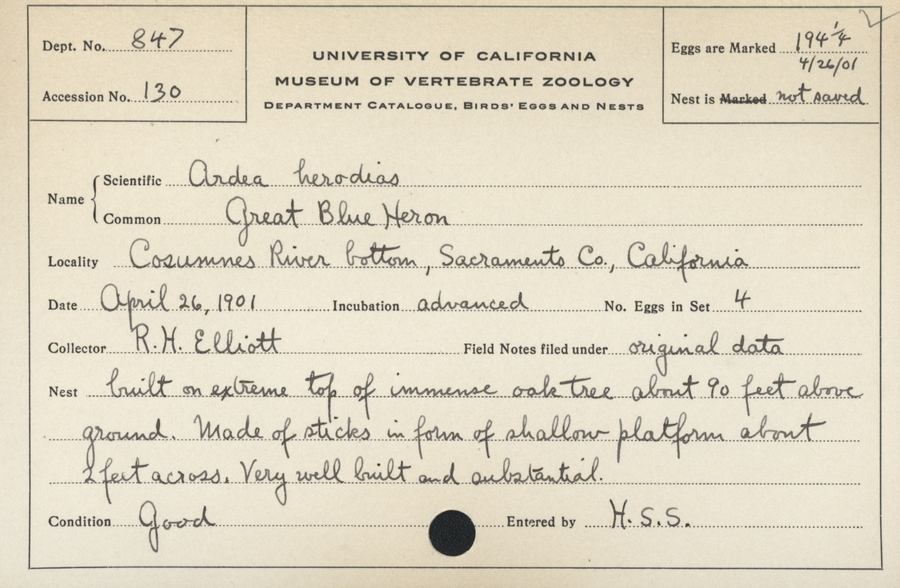 Dept. No. 847
Accession No. 130
UNIVERSITY OF CALIFORNIA
MUSEUM OF VERTEBRATE ZOOLOGY
DEPARTMENT CATALOGUE, BIRDS' EGGS AND NESTS
Eggs are Marked 194 1/4
4/26/01
Nest is Marked not saved
Name { Scientific Ardea herodias
Common Great Blue Heron
Locality Cosumnes River bottom, Sacramento Co., California
Date April 26, 1901 Incubation advanced No. Eggs in Set 4
Collector R.H. Elliott Field Notes filed under original data
Nest built on extreme top of immense oak tree about 90 feet above
ground. Made of sticks in form of shallow platform about
2 feet across. Very well built and substantial.
Condition Good Entered by H.S.S.